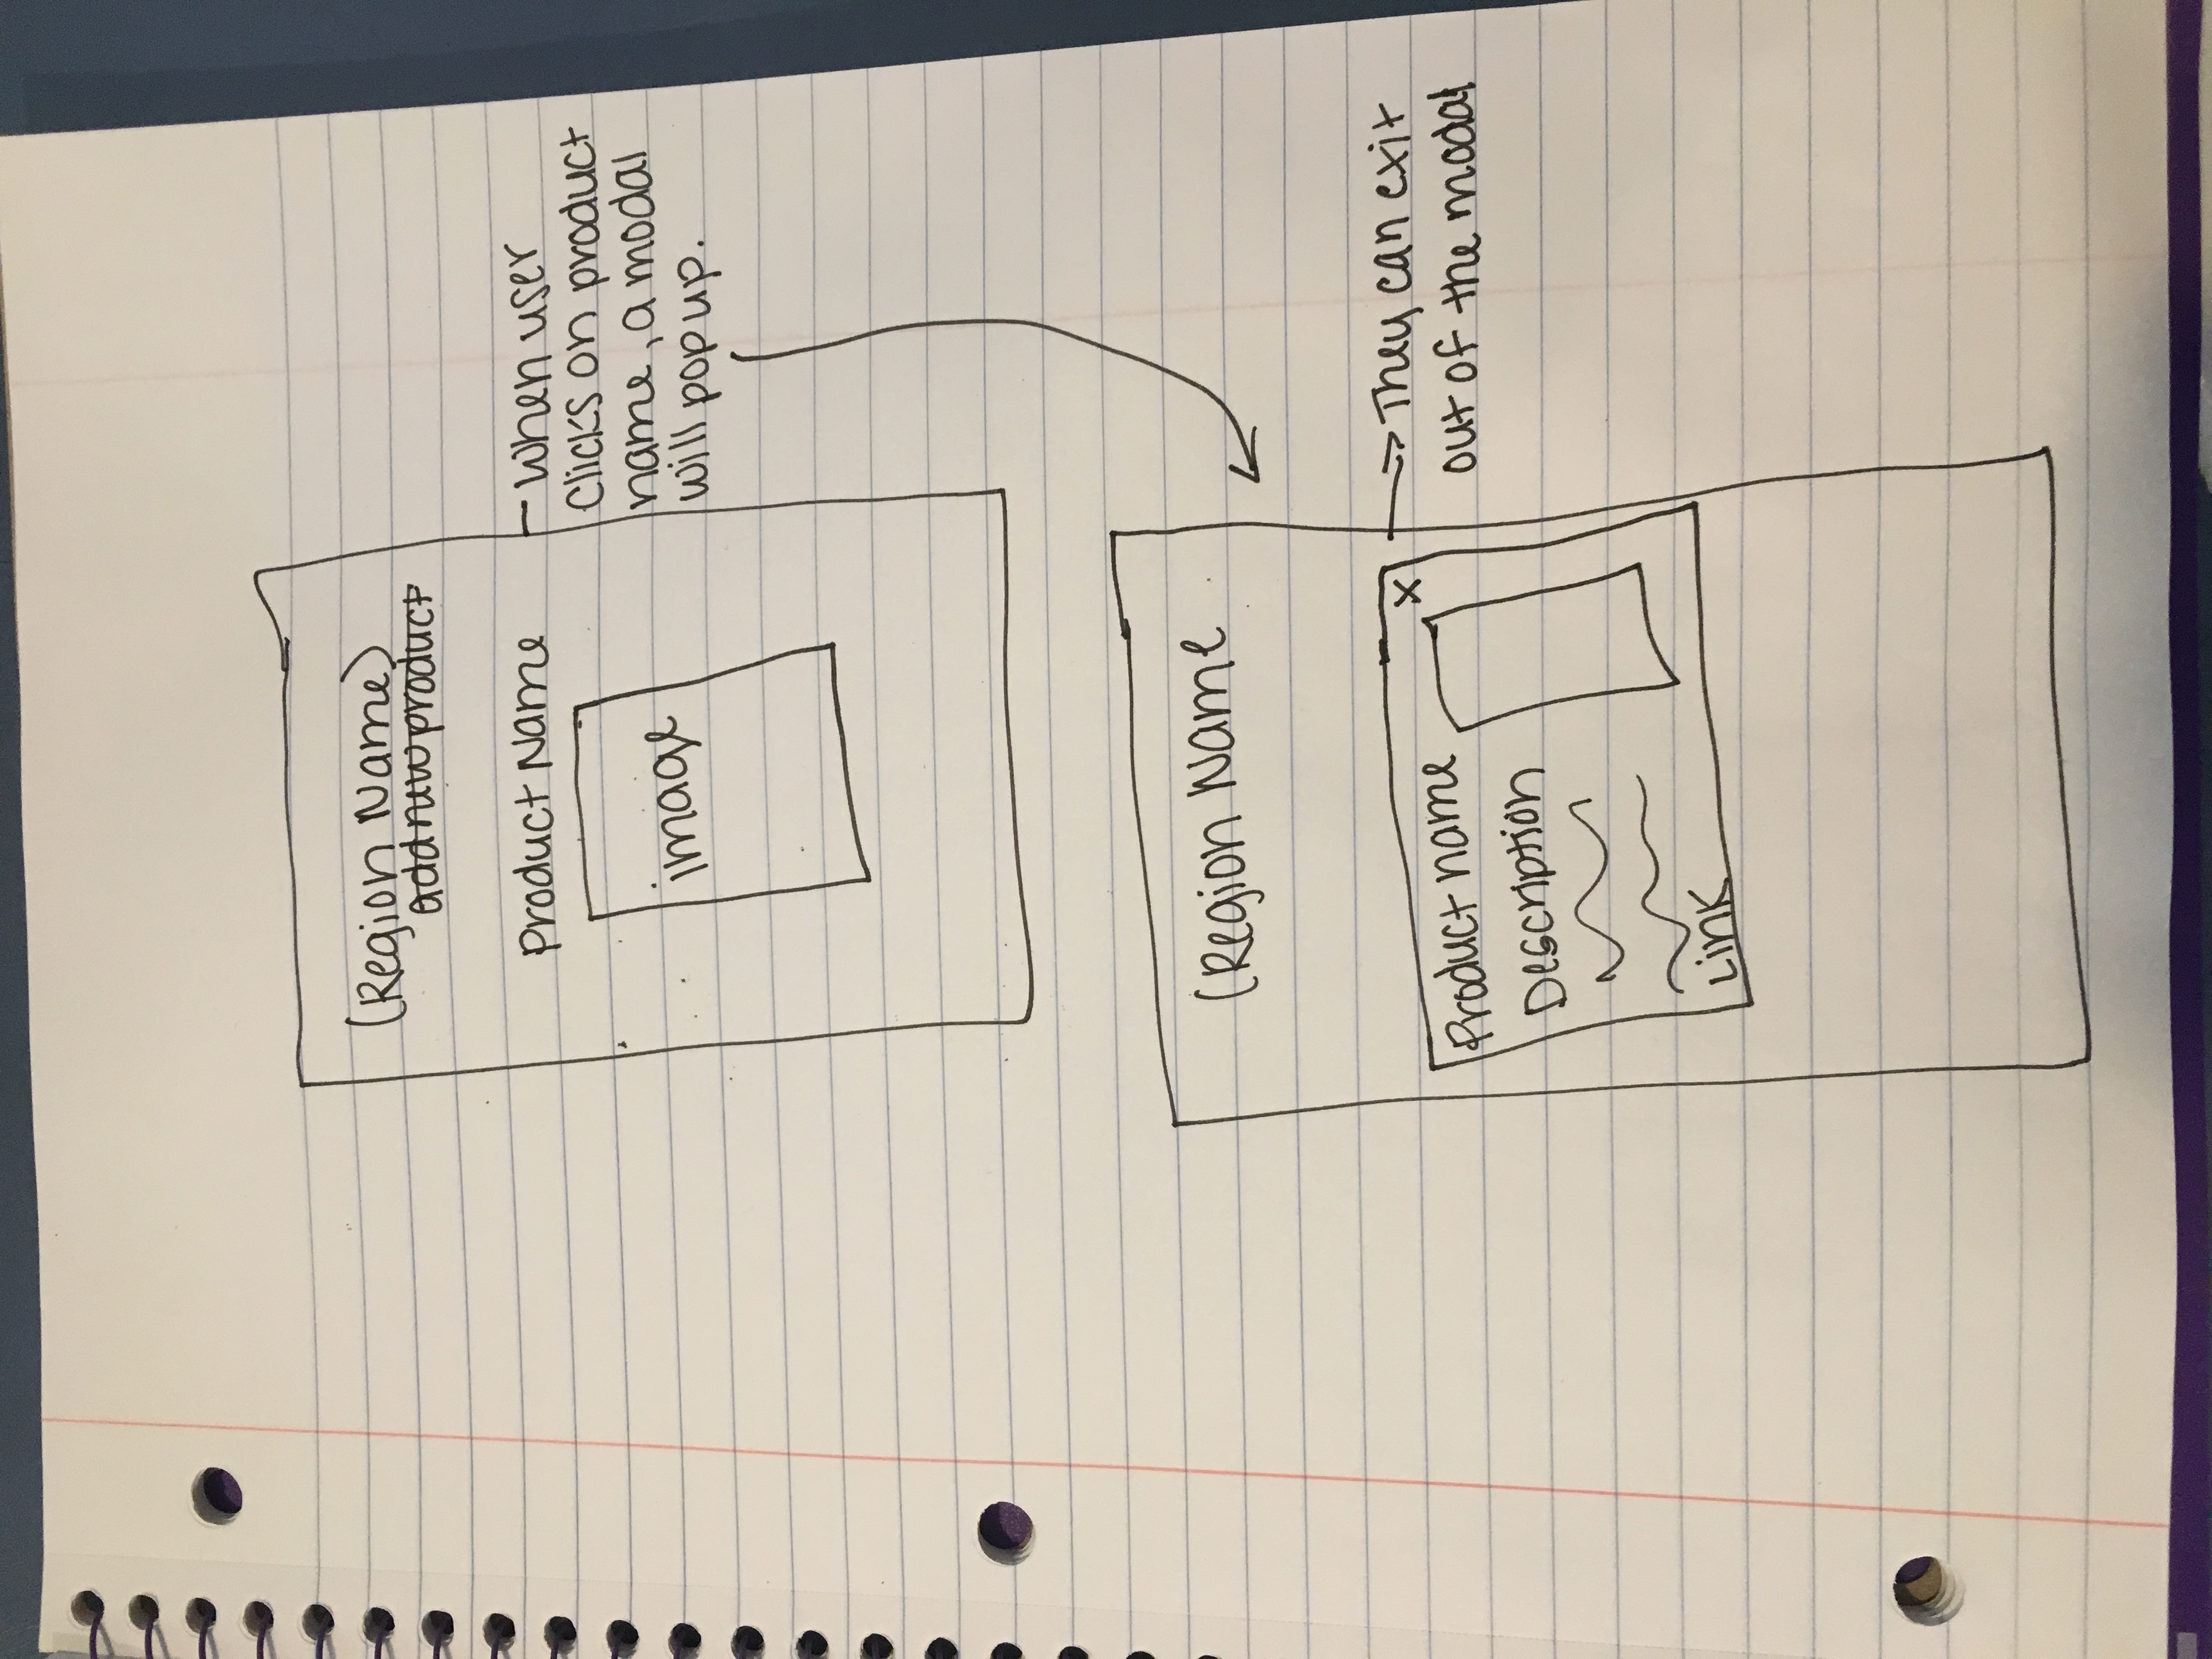 (Region Name)
add new product
Product Name
image
- When user
clicks on product
name, a modal
will pop up.
(Region Name
X
Product name
Description
Link
They can exit
out of the modal